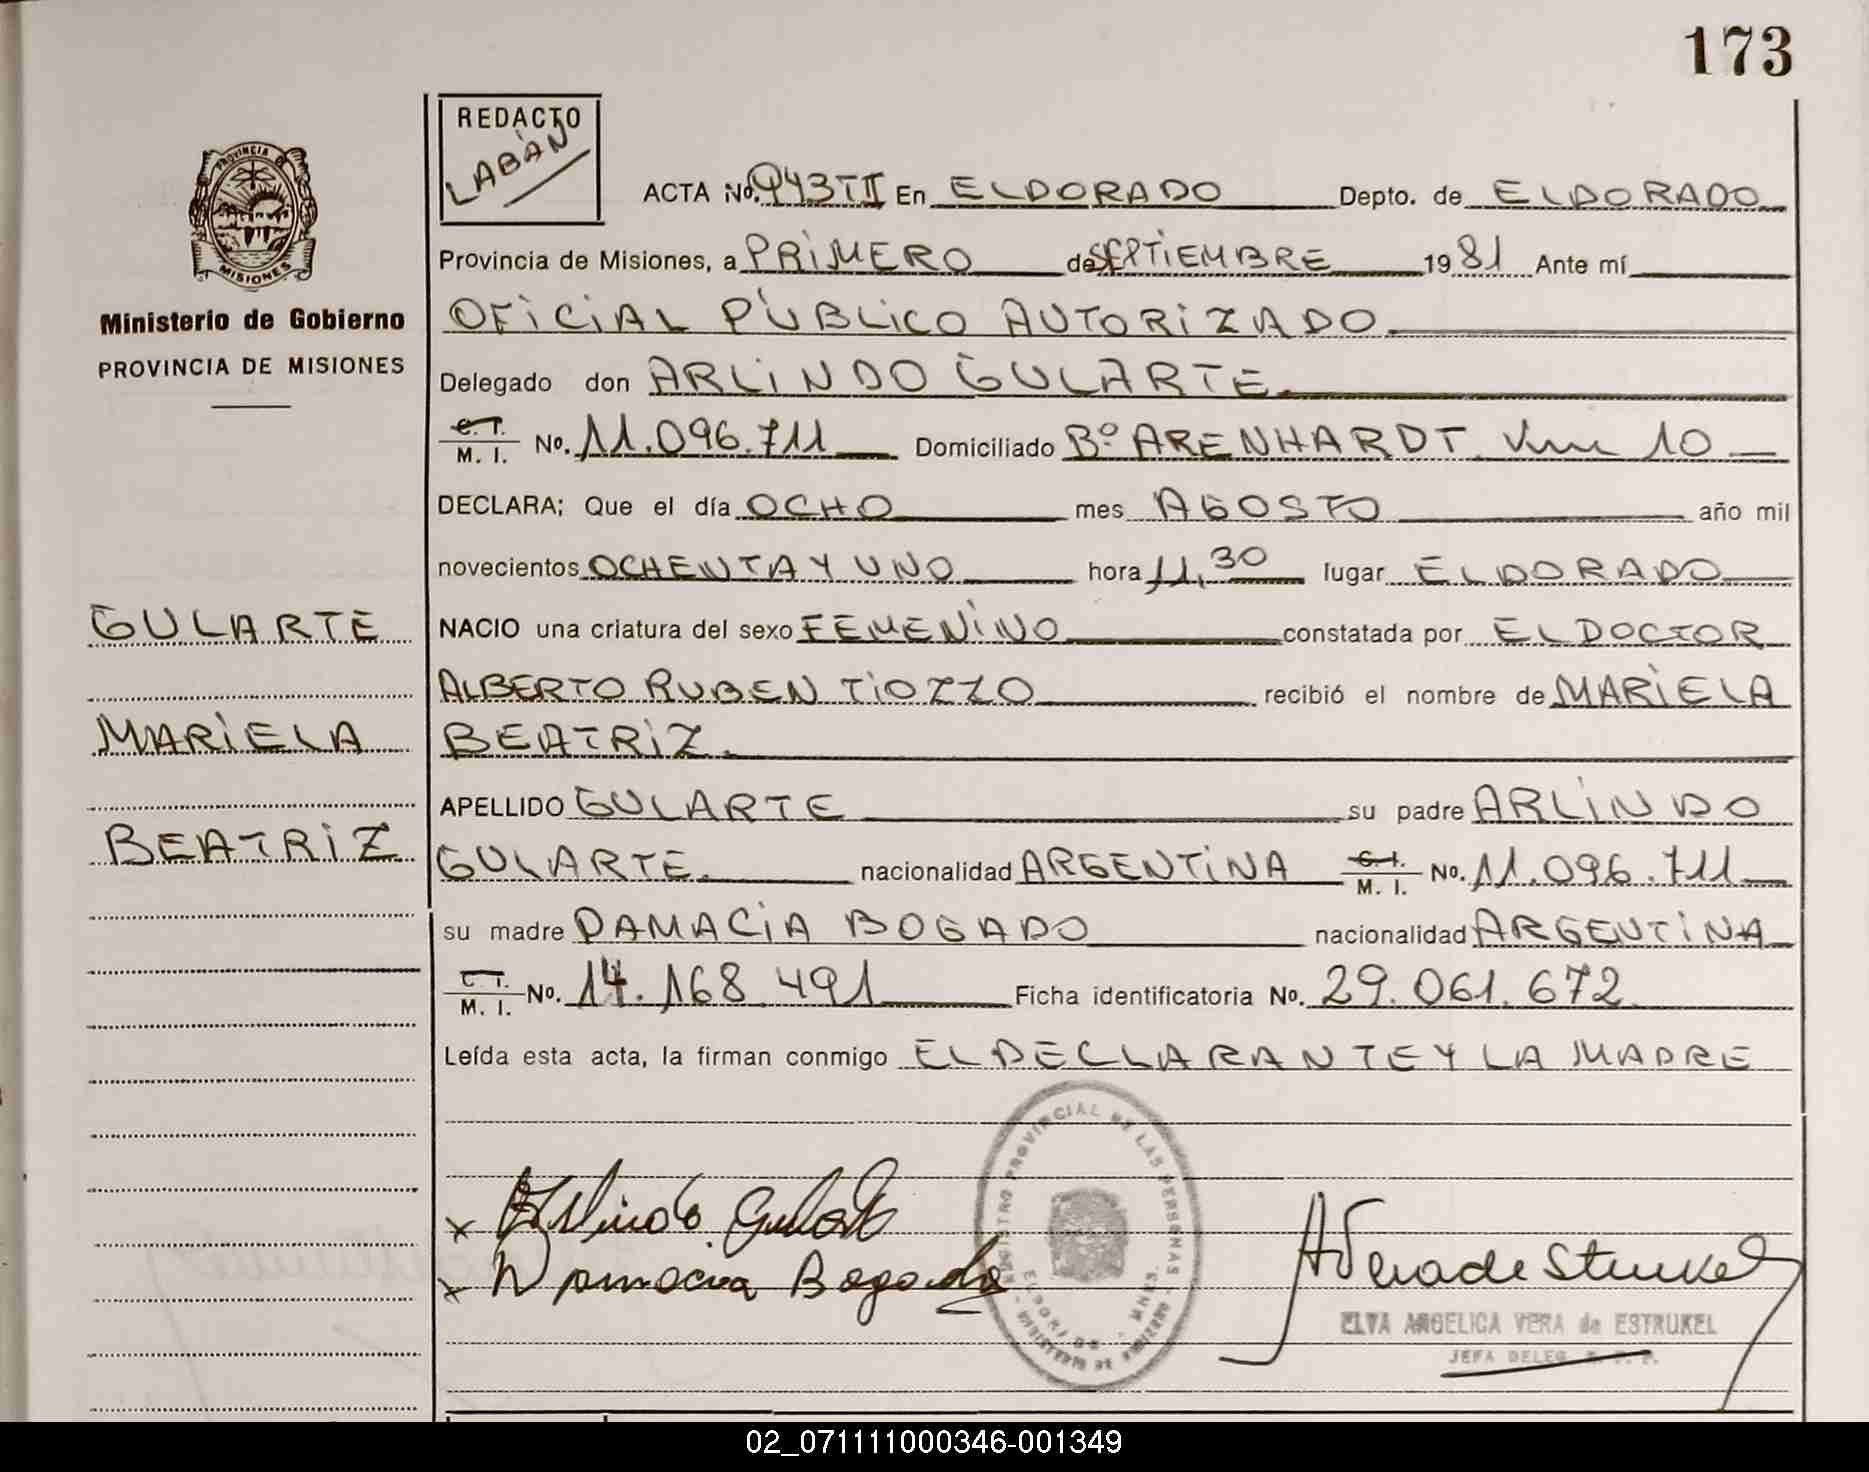 173
REDACTO
LABÁN
PROVINCIA DE
MISIONES
Ministerio de Gobierno
PROVINCIA DE MISIONES
ACTA No. 943TII En ELDORADO Depto. de ELDORADO
Provincia de Misiones, a PRIMERO de SEPTIEMBRE 1981 Ante mí
OFICIAL PÚBLICO AUTORIZADO.
Delegado don ARLINDO GULARTE.
C. I. M. I. No. 11.096.711 Domiciliado Bº ARENHARDT Km 10
DECLARA; Que el día OCHO mes AGOSTO año mil
novecientos OCHENTA Y UNO hora 11,30 lugar ELDORADO
GULARTE
NACIO una criatura del sexo FEMENINO constatada por EL DOCTOR
ALBERTO RUBEN TIOZZO recibió el nombre de MARIELA
MARIELA
BEATRIZ.
APELLIDO GULARTE su padre ARLINDO
BEATRIZ
GULARTE. nacionalidad ARGENTINA C. I. M. I. No. 11.096.711
su madre DAMACIA BOGADO nacionalidad ARGENTINA
C. I. M. I. No. 14.168.491 Ficha identificatoria No. 29.061.672
Leída esta acta, la firman conmigo EL DECLARANTE Y LA MADRE
REGISTRO PROVINCIAL DE LAS PERSONAS
ELDORADO - MNES.
MINISTERIO DE GOBIERNO
x Arlindo Gularte
x Damacia Bogado
AVera de Struckel
ELVA ANGELICA VERA de ESTRUKEL
JEFA DELEG. R. P. P.
02_071111000346-001349